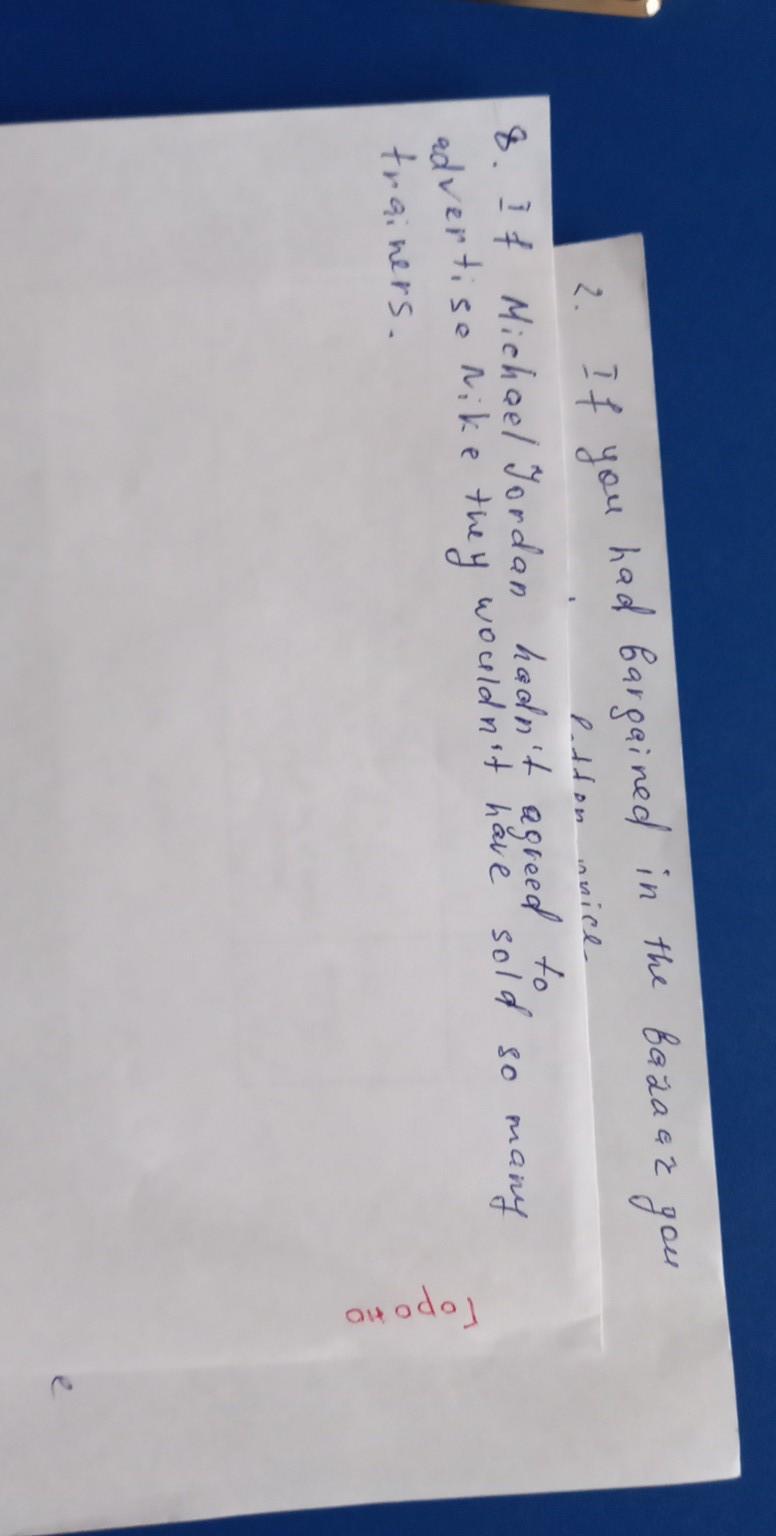 2. If you had bargained in the bazaar you
8. If Michael Jordan hadn't agreed to
advertise Nike they wouldn't have sold so many
trainers.